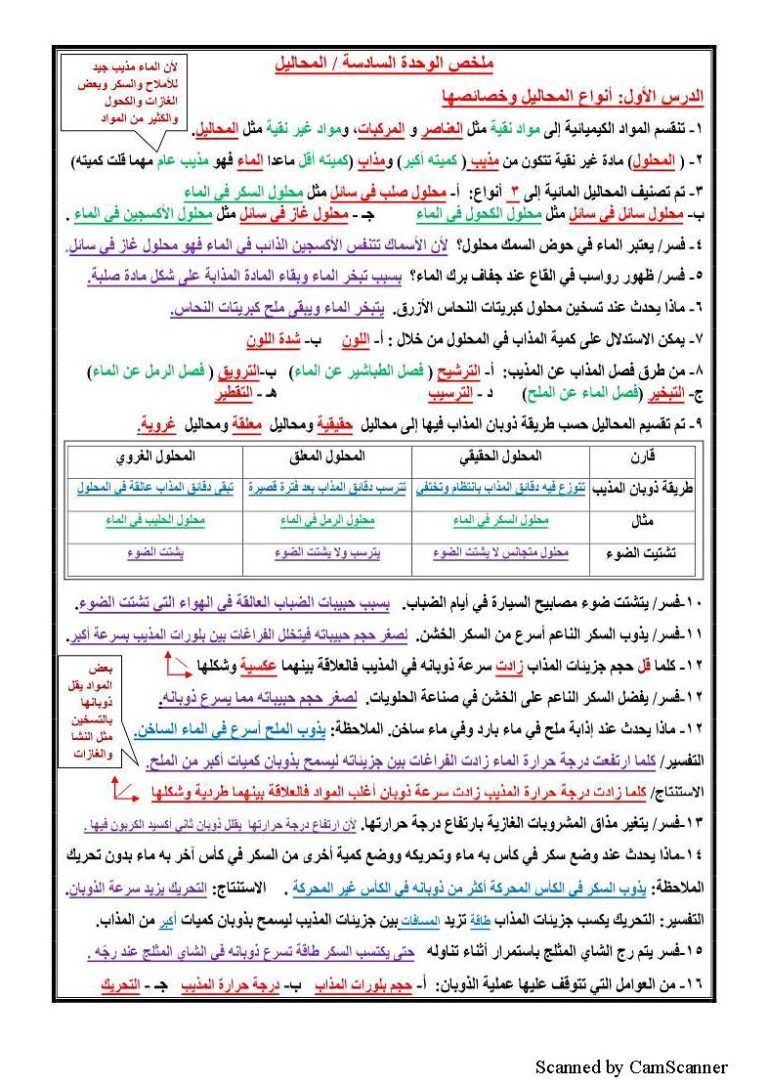 ملخص الوحدة السادسة / المحاليل
لأن الماء مذيب جيد
للأملاح والسكر وبعض
الغازات والكحول
والكثير من المواد
الدرس الأول: أنواع المحاليل وخصائصها
١- تنقسم المواد الكيميائية إلى مواد نقية مثل العناصر و المركبات، ومواد غير نقية مثل المحاليل.
٢- ( المحلول) مادة غير نقية تتكون من مذيب ( كميته أكبر) ومذاب (كميته أقل ماعدا الماء فهو مذيب عام مهما قلت كميته)
٣- تم تصنيف المحاليل المائية إلى ٣ أنواع: أ- محلول صلب في سائل مثل محلول السكر في الماء
ب- محلول سائل في سائل مثل محلول الكحول في الماء جـ - محلول غاز في سائل مثل محلول الأكسجين في الماء .
٤- فسر/ يعتبر الماء في حوض السمك محلول؟ لأن الأسماك تتنفس الأكسجين الذائب في الماء فهو محلول غاز في سائل.
٥- فسر/ ظهور رواسب في القاع عند جفاف برك الماء؟ بسبب تبخر الماء وبقاء المادة المذابة على شكل مادة صلبة.
٦- ماذا يحدث عند تسخين محلول كبريتات النحاس الأزرق. يتبخر الماء ويبقى ملح كبريتات النحاس.
٧- يمكن الاستدلال على كمية المذاب في المحلول من خلال : أ- اللون ب- شدة اللون
٨- من طرق فصل المذاب عن المذيب: أ- الترشيح ( فصل الطباشير عن الماء) ب-الترويق ( فصل الرمل عن الماء)
ج- التبخير (فصل الماء عن الملح) د - الترسيب هـ - التقطير
٩- تم تقسيم المحاليل حسب طريقة ذوبان المذاب فيها إلى محاليل حقيقية ومحاليل معلقة ومحاليل غروية.
قارن المحلول الحقيقي المحلول المعلق المحلول الغروي
طريقة ذوبان المذيب تتوزع فيه دقائق المذاب بانتظام وتختفي تترسب دقائق المذاب بعد فترة قصيرة تبقى دقائق المذاب عالقة في المحلول
مثال محلول السكر في الماء محلول الرمل في الماء محلول الحليب في الماء
تشتيت الضوء محلول متجانس لا يشتت الضوء يترسب ولا يشتت الضوء يشتت الضوء
١٠-فسر/ يتشتت ضوء مصابيح السيارة في أيام الضباب. بسبب حبيبات الضباب العالقة في الهواء التي تشتت الضوء.
١١-فسر/ يذوب السكر الناعم أسرع من السكر الخشن. لصغر حجم حبيباته فيتخلل الفراغات بين بلورات المذيب بسرعة أكبر.
١٢- كلما قل حجم جزيئات المذاب زادت سرعة ذوبانه في المذيب فالعلاقة بينهما عكسية وشكلها
١٢-فسر/ يفضل السكر الناعم على الخشن في صناعة الحلويات. لصغر حجم حبيباته مما يسرع ذوبانه.
بعض
المواد يقل
ذوبانها
بالتسخين
مثل النشا
والغازات
١٢- ماذا يحدث عند إذابة ملح في ماء بارد وفي ماء ساخن. الملاحظة: يذوب الملح أسرع في الماء الساخن.
التفسير/ كلما ارتفعت درجة حرارة الماء زادت الفراغات بين جزيئاته ليسمح بذوبان كميات أكبر من الملح.
الاستنتاج/ كلما زادت درجة حرارة المذيب زادت سرعة ذوبان أغلب المواد فالعلاقة بينهما طردية وشكلها
١٣-فسر/ يتغير مذاق المشروبات الغازية بارتفاع درجة حرارتها. لأن ارتفاع درجة حرارتها يقلل ذوبان ثاني أكسيد الكربون فيها .
١٤-ماذا يحدث عند وضع سكر في كأس به ماء وتحريكه ووضع كمية أخرى من السكر في كأس آخر به ماء بدون تحريك
الملاحظة: يذوب السكر في الكأس المحركة أكثر من ذوبانه في الكأس غير المحركة . الاستنتاج: التحريك يزيد سرعة الذوبان.
التفسير: التحريك يكسب جزيئات المذاب طاقة تزيد المسافات بين جزيئات المذيب ليسمح بذوبان كميات أكبر من المذاب.
١٥-فسر يتم رج الشاي المثلج باستمرار أثناء تناوله حتى يكتسب السكر طاقة تسرع ذوبانه في الشاي المثلج عند رجّه .
١٦- من العوامل التي تتوقف عليها عملية الذوبان: أ- حجم بلورات المذاب ب- درجة حرارة المذيب جـ - التحريك
Scanned by CamScanner